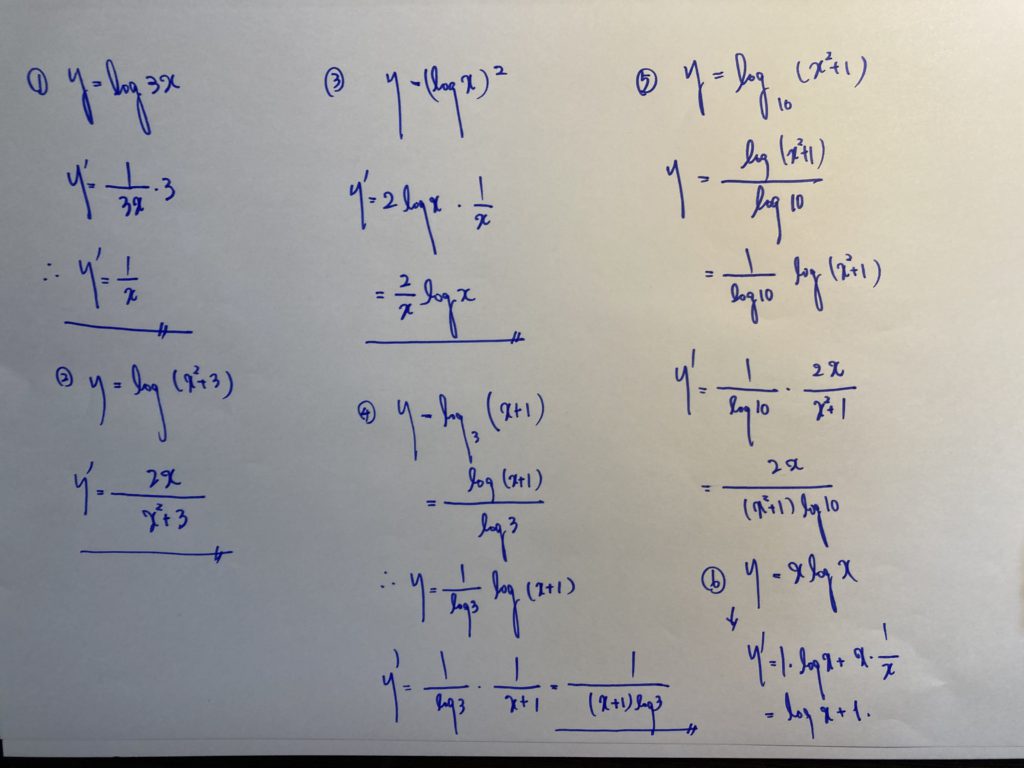 ① y = log 3x
y' = 1/3x · 3
∴ y' = 1/x
② y = log (x²+3)
y' = 2x/x²+3
③ y = (log x)²
y' = 2 log x · 1/x
= 2/x log x
④ y = log₃ (x+1)
= log (x+1)/log 3
∴ y = 1/log 3 log (x+1)
y' = 1/log 3 · 1/x+1 = 1/(x+1) log 3
⑤ y = log₁₀ (x²+1)
y = log (x²+1)/log 10
= 1/log 10 log (x²+1)
y' = 1/log 10 · 2x/x²+1
= 2x/(x²+1) log 10
⑥ y = x log x
↓
y' = 1 · log x + x · 1/x
= log x + 1.